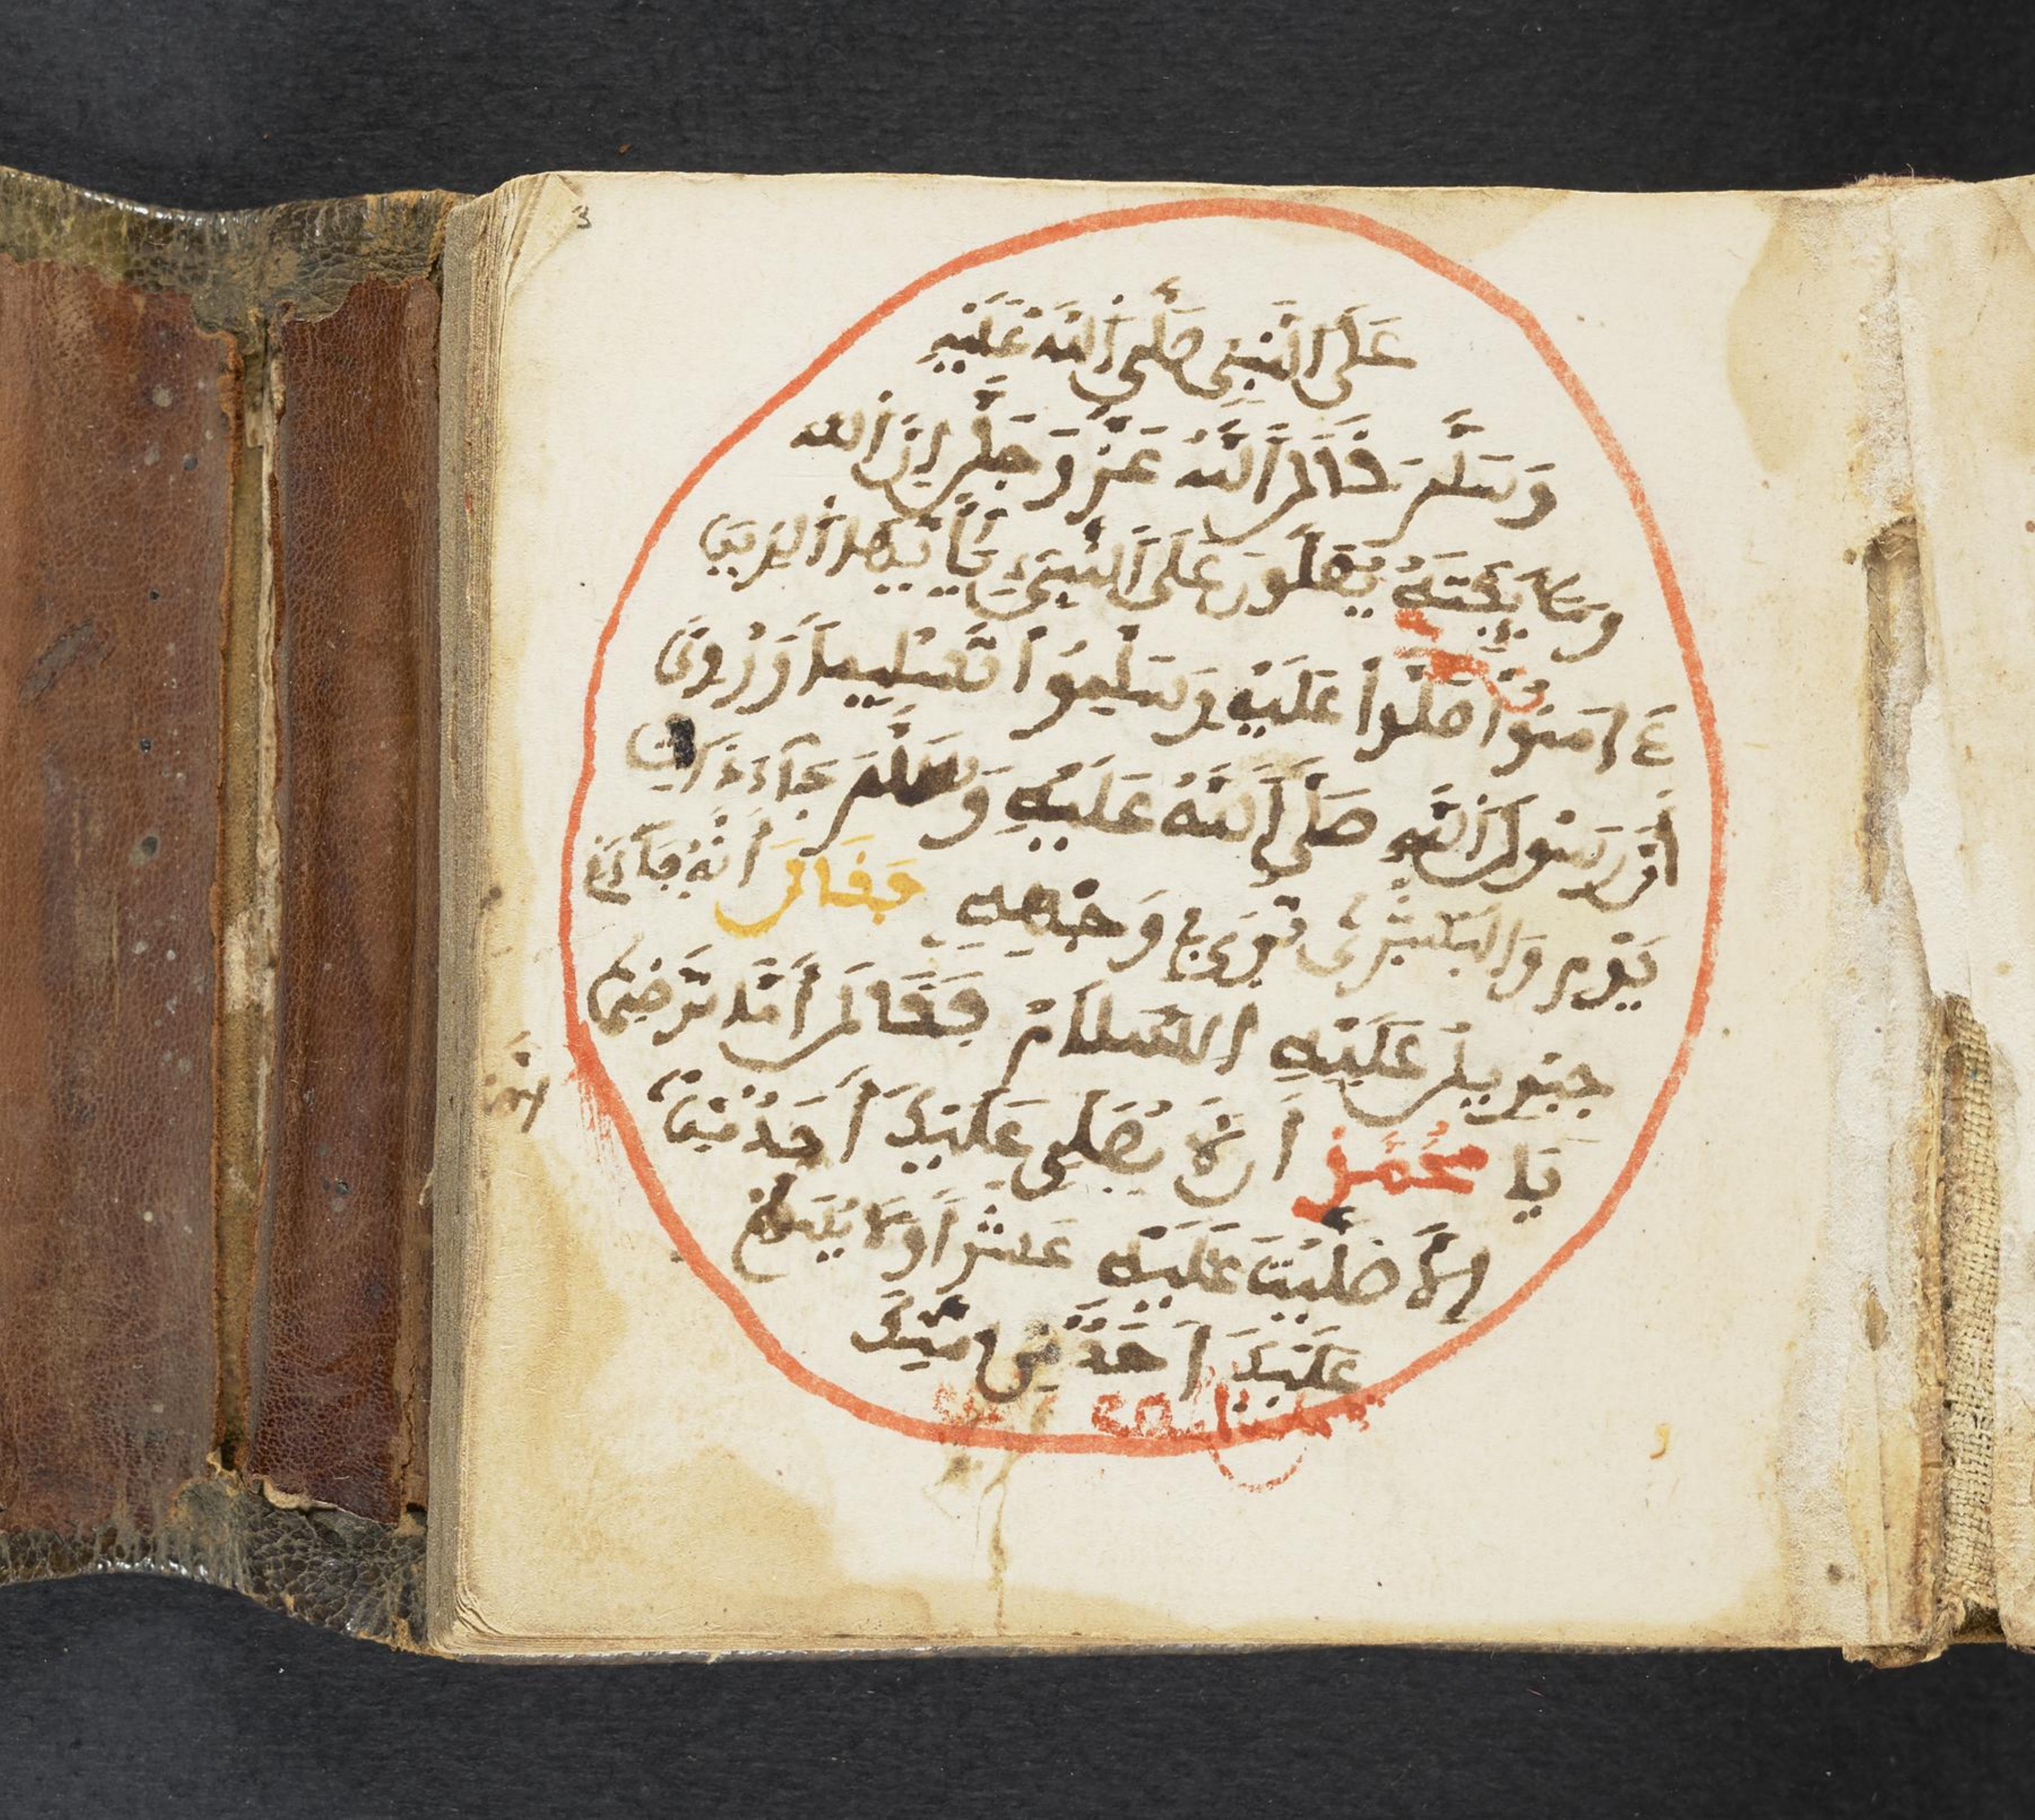 3
عَلَى النَّبِيِّ صَلَّى اللَّهُ عَلَيْهِ
وَسَلَّمَ قَالَ اللَّهُ عَزَّ وَجَلَّ إِنَّ اللَّه
وَمَلَائِكَتَهُ يُصَلُّونَ عَلَى النَّبِيِّ يَا أَيُّهَا الَّذِينَ
ءَامَنُوا صَلُّوا عَلَيْهِ وَسَلِّمُوا تَسْلِيمًا وَرُوِيَ
أَنَّ رَسُولَ اللَّهِ صَلَّى اللَّهُ عَلَيْهِ وَسَلَّمَ جَاءَ ذَاتَ
يَوْمٍ وَالْبُشْرَى تُرَى فِي وَجْهِهِ فَقَالَ إِنَّهُ جَاءَنِي
جِبْرِيلُ عَلَيْهِ السَّلَامُ فَقَالَ أَمَا تَرْضَى
يَا مُحَمَّدُ أَنْ لَا يُصَلِّيَ عَلَيْكَ أَحَدٌ مِنْ
إِلَّا صَلَّيْتُ عَلَيْهِ عَشْرًا وَلَا يُسَلِّمُ
عَلَيْكَ أَحَدٌ مِنْ أُمَّتِكَ